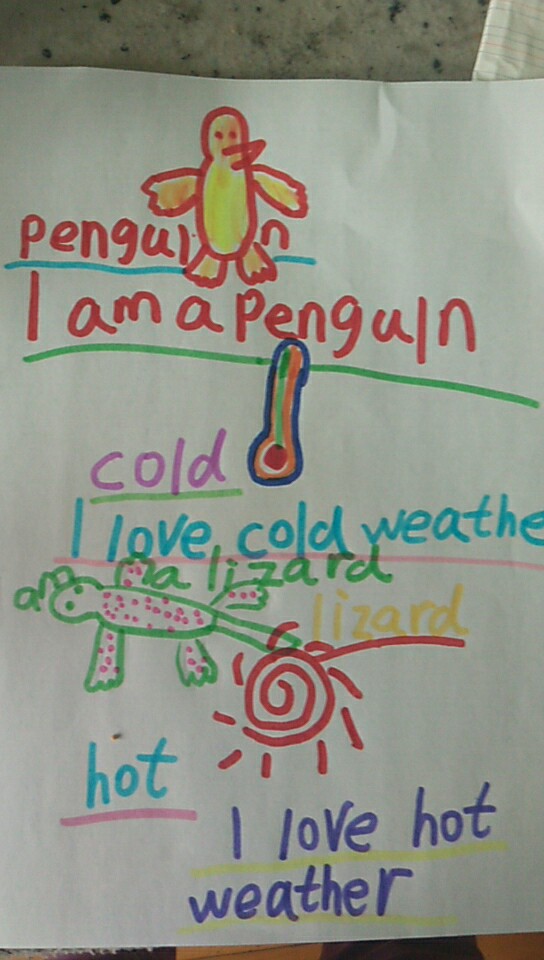 penguin
I am a Penguin
cold
I love cold weathe
am a lizard
lizard
hot
I love hot
weather